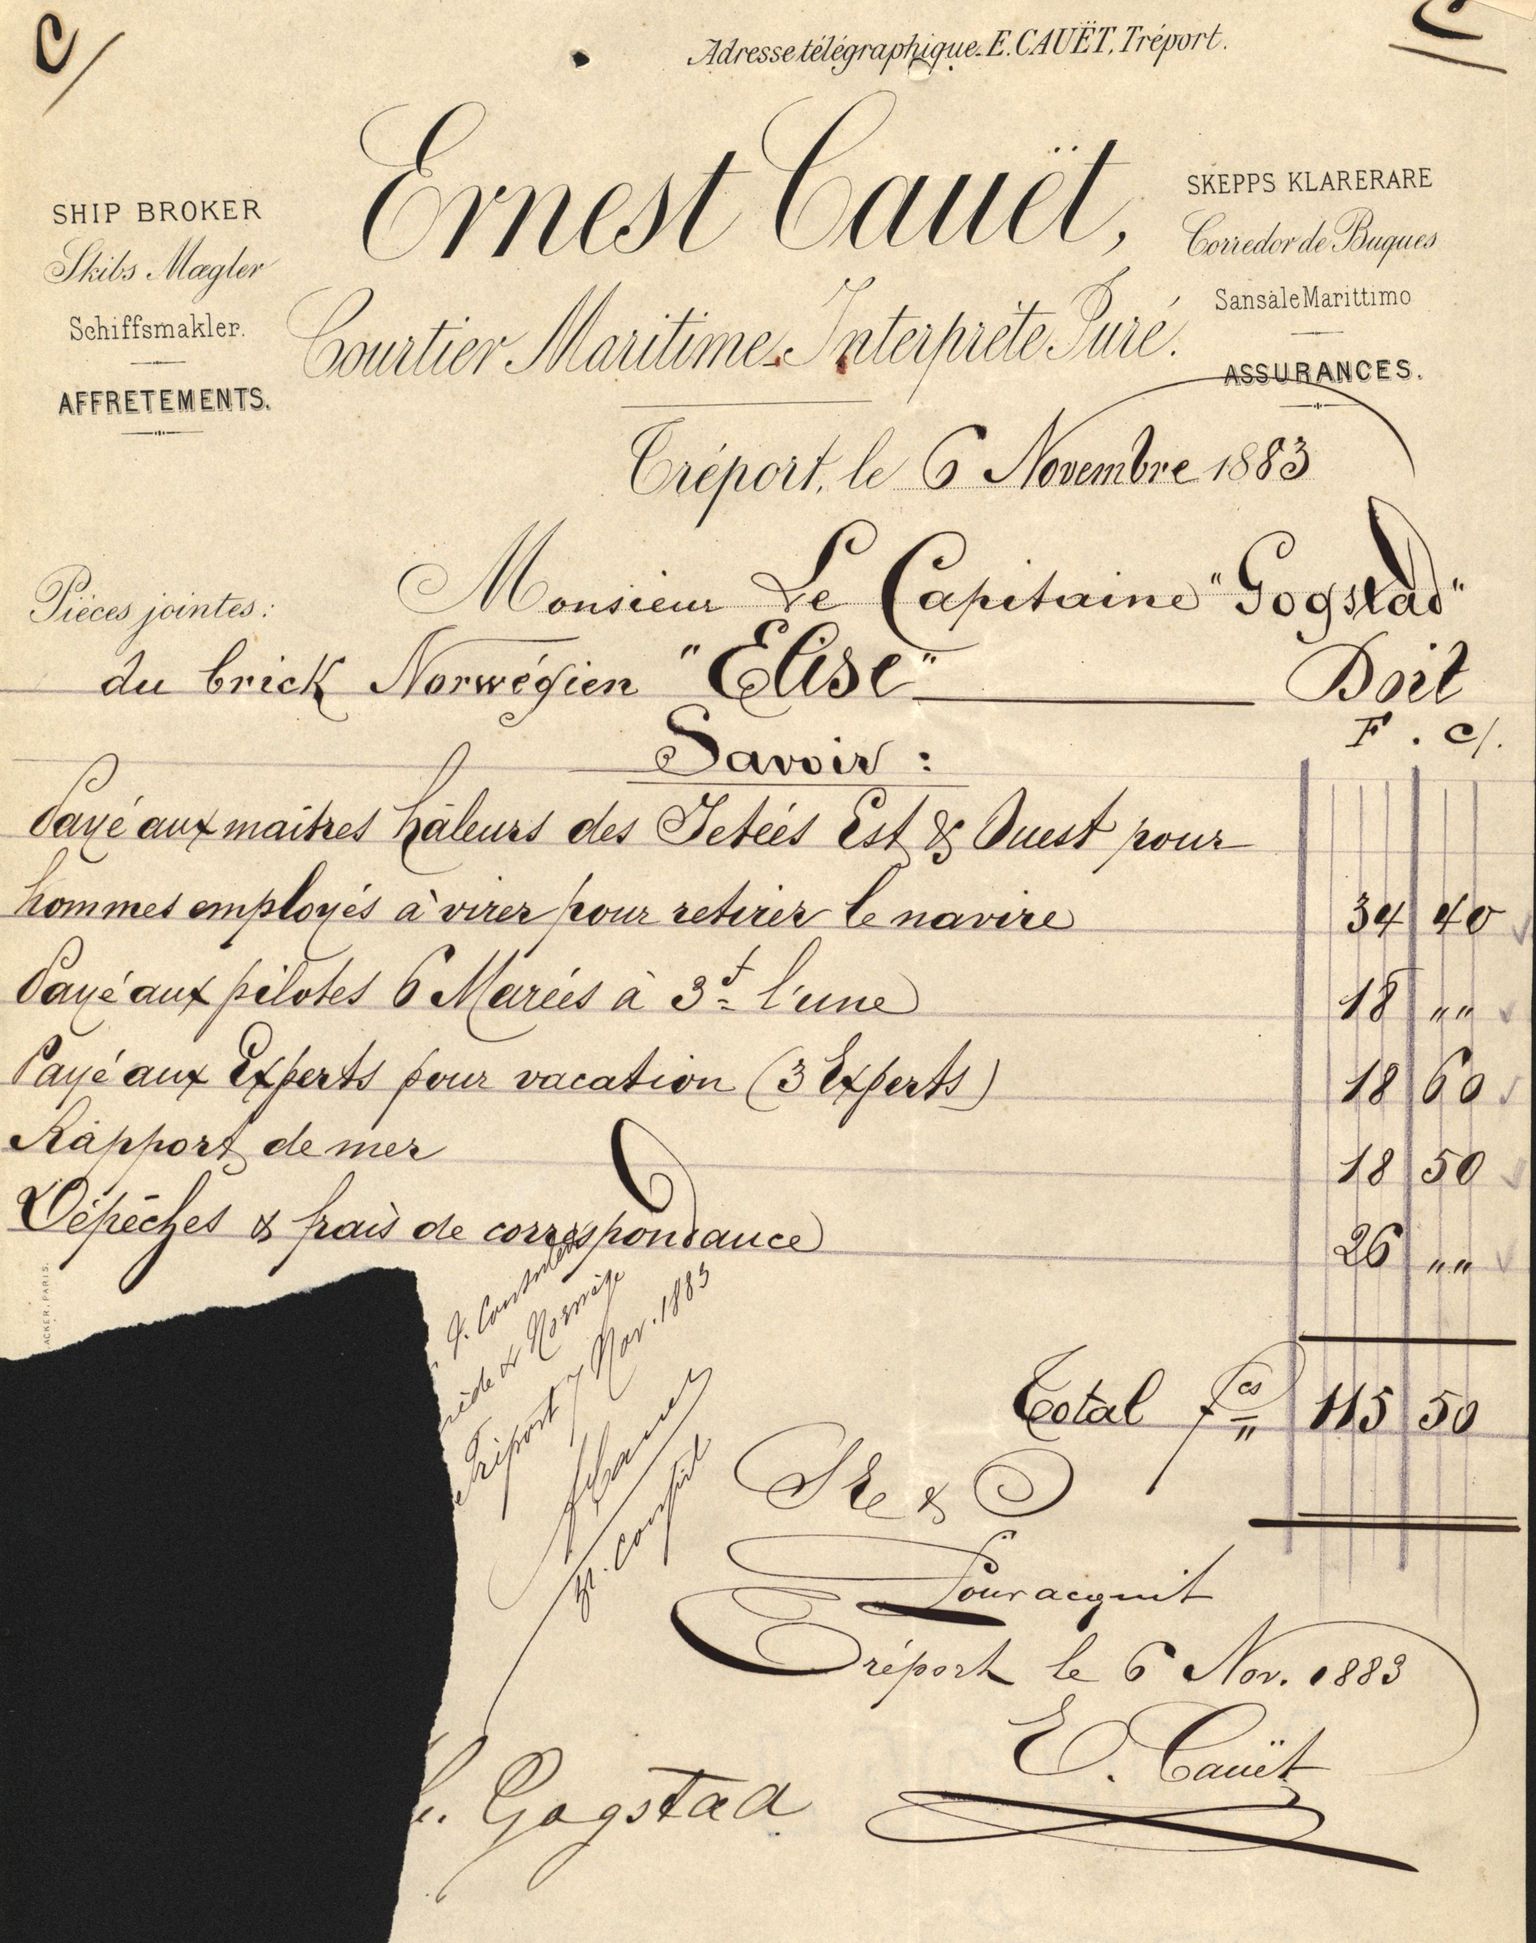 C/
Adresse télégraphique. E. CAUËT, Tréport.
Ernest Cauët,
Courtier Maritime - Interprète Juré.
SHIP BROKER
Skibs Mægler
Schiffsmakler.
AFFRETEMENTS.
SKEPPS KLARERARE
Corredor de Buques
Sansale Marittimo
ASSURANCES.
Tréport, le 6 Novembre 1883
Pièces jointes:
Monsieur Le Capitaine "Gogstad"
du brick Norwégien "Elise" Doit
Savoir : F. C/.
Payé aux maîtres hâleurs des Jetées Est & Ouest pour
hommes employés à virer pour retirer le navire 34 40
Payé aux pilotes 6 Marées à 3f l'une 18 „„
Payé aux Experts pour vacation (3 Experts) 18 60
Rapport de mer 18 50
Dépêches & frais de correspondance 26 „„
Total fcs 115 50
ACKER. PARIS.
& Norvège
Tréport 7 Nov. 1883
Cauet
Pour acquit
Tréport le 6 Nov. 1883
E. Cauët
Gogstad